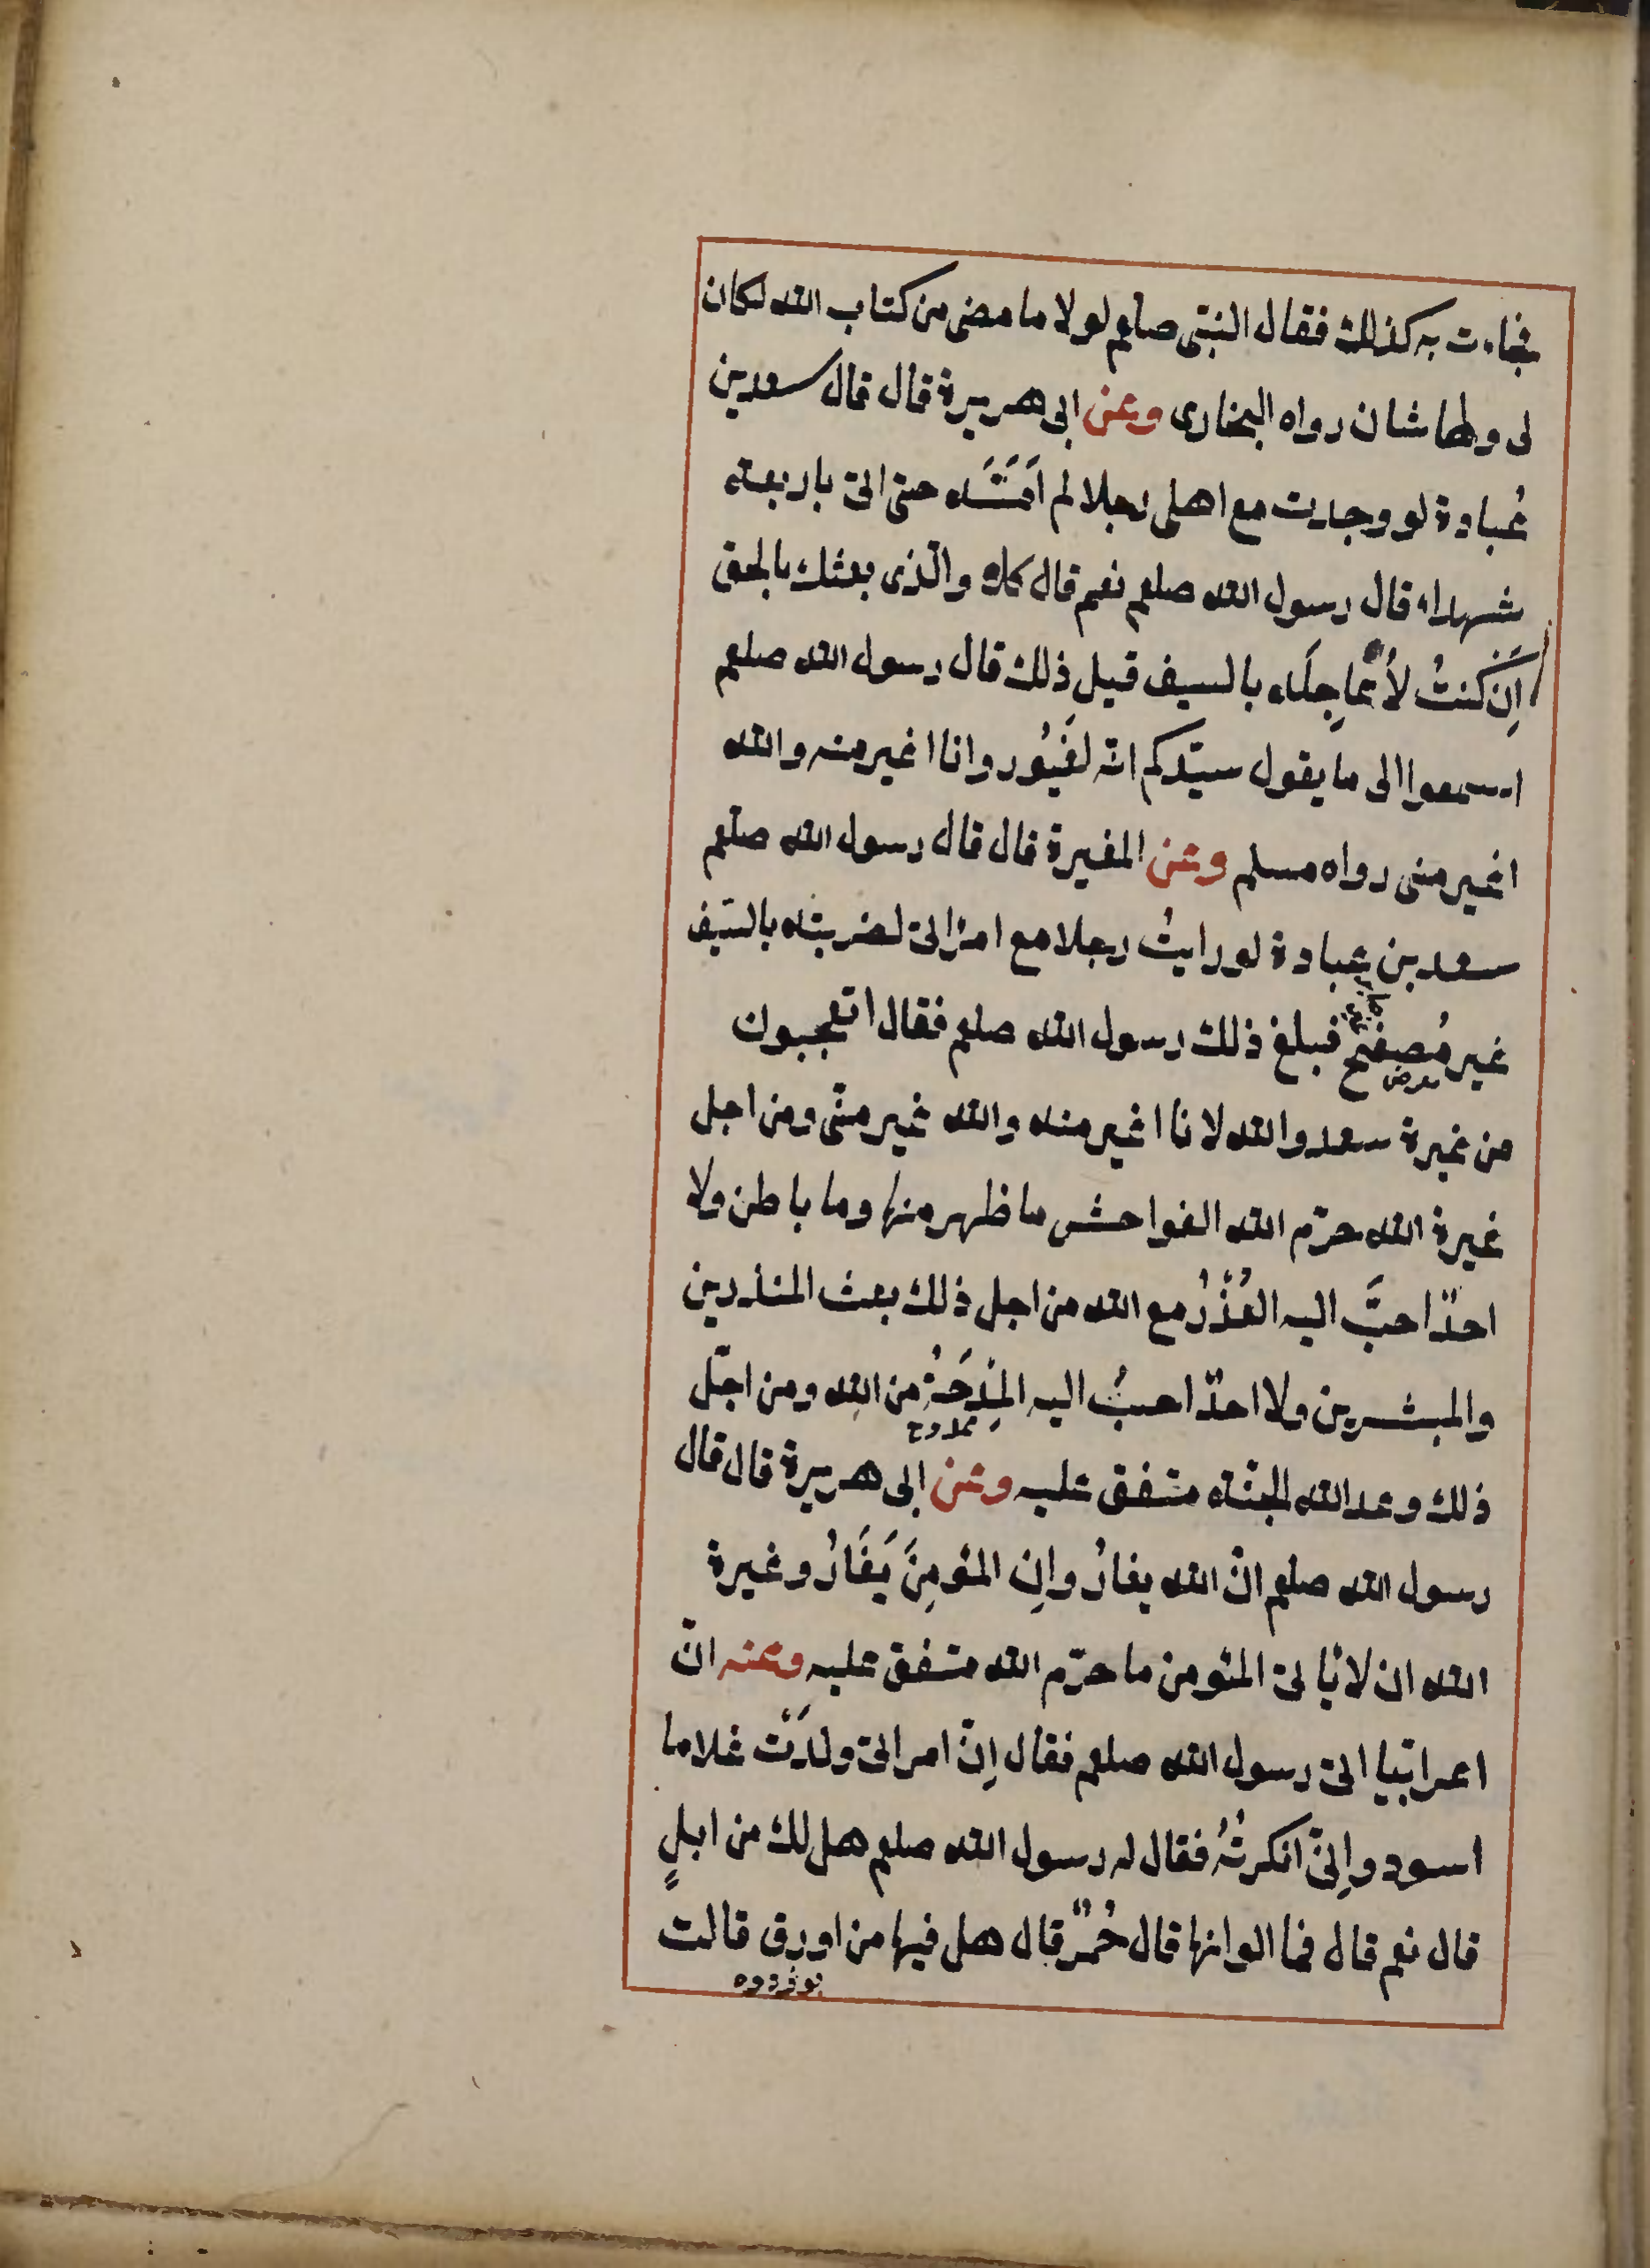 فجاءت به كذلك فقال النبى صلعم لولا ما مضى من كتاب الله لكان
لى ولها شان رواه البخارى وعن ابى هريرة قال قال سعد بن
عُبادة لو وجدت مع اهلى رجلا لم اَمَسَّه حتى اتى باربعة
شهداء قال رسول الله صلعم نعم قال كلا والّذى بعثك بالحق
اِن كنتُ لأُعاجِلَه بالسيف قبل ذلك قال رسول الله صلعم
اسمعوا الى ما يقول سيّدكم انّه لغَيُور وانا اغير منه والله
اغير منى رواه مسلم وعن المغيرة قال قال رسول الله صلعم
سعد بن عبادة لو رايتُ رجلا مع امراتى لضربته بالسّيف
غير مُصفَح فبلغ ذلك رسول الله صلعم فقال اتعجبون
معرض
من غيرة سعد والله لانا اغير منه والله غير منّى ومن اجل
غيرة الله حرّم الله الفواحش ما ظهر منها وما باطن ولا
احدٌ احبَّ اليه العُذْرُ مع الله من اجل ذلك بعث المنذرين
والمبشرين ولا احدٌ احبُّ اليه المِدْحَةُ من الله ومن اجل
ممدوح
ذلك وعد الله الجنّة متفق عليه وعن ابى هريرة قال قال
رسول الله صلعم انّ الله يغارُ واِن المؤمِنَ يَغَارُ وغيرة
الله ان لا يأتى المؤمن ما حرّم الله متفق عليه وعنه انّ
اعرابيّا اتى رسول الله صلعم فقال اِنّ امراتى ولدَتْ غلاما
اسود واِنّى انكرتُهُ فقال له رسول الله صلعم هل لك من ابلٍ
قال نعم قال فما الوانها قال حُمْرٌ قال هل فيها من اورق قالت